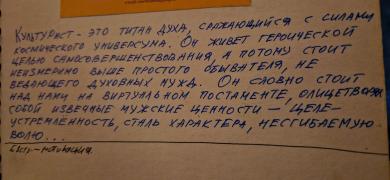 Культурист - это титан духа, сражающийся с силами
космического универсума. Он живет героической
целью самосовершенствования, и потому стоит
неизмеримо выше простого обывателя, не
ведающего духовных нужд. Он словно стоит
над нами на виртуальном постаменте, олицетворяя
собой извечные мужские ценности – целе-
устремлённость, сталь характера, несгибаемую
волю...